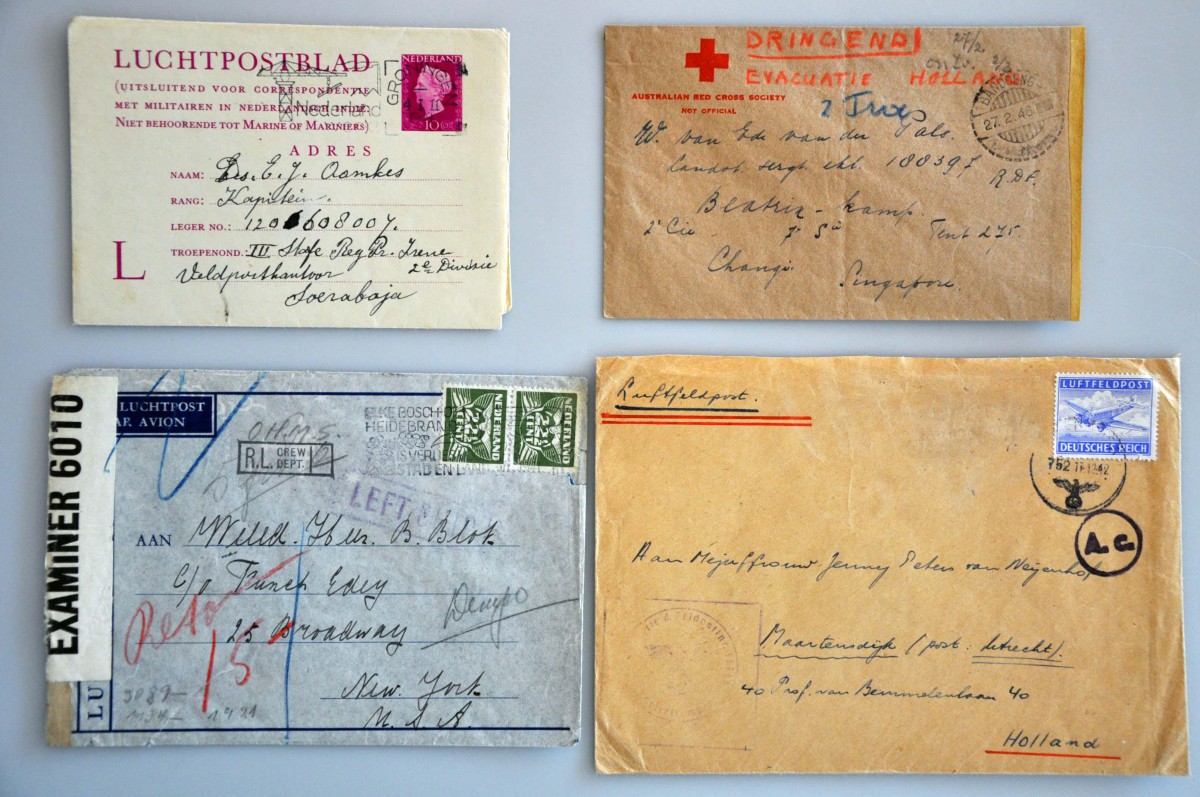 LUCHTPOSTBLAD
(UITSLUITEND VOOR CORRESPONDENTIE
MET MILITAIREN IN NEDERLANDSCH-INDIË
NIET BEHOORENDE TOT MARINE OF MARINIERS)
NEDERLAND
10 CT
Nederland
ADRES
NAAM: Ds. E. J. Oomkes
RANG: Kapitein.
LEGER NO.: 120608007.
TROEPENOND. III Stafe Reg Pr. Irene
2e Divisie
L
Veldpostkantoor
Soerabaja
DRINGEND!
EVACUATIE HOLLAND
27/2
AUSTRALIAN RED CROSS SOCIETY
NOT OFFICIAL
27.2.46
W. van Ede van der Pals.
Landst. sergt. ekl. 188397
R.D.F.
Beatrix-kamp.
2e Cie
Tent 275.
Changi.
Singapore.
EXAMINER 6010
LUCHTPOST
PAR AVION
O.H.M.S.
R.L. CREW DEPT.
ELKE BOSCH- OF
HEIDEBRAND
IS VERLIES
STAD EN LAND
NEDERLAND
2½ CENT
NEDERLAND
2½ CENT
LEFT
AAN Weled. Heer. B. Blok
c/o Funch Edey
25 Broadway
New. York
U.S.A.
Reto
15
LU
Luftfeldpost.
LUFTFELDPOST
DEUTSCHES REICH
752
A.c.
Aan Mejuffrouw Jenny Peters van Neijenhof
Maartensdijk (post: Utrecht).
40 Prof. van Bemmelenlaan 40
Holland